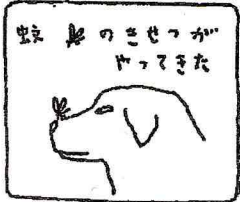 蚊のきせつが
やってきた